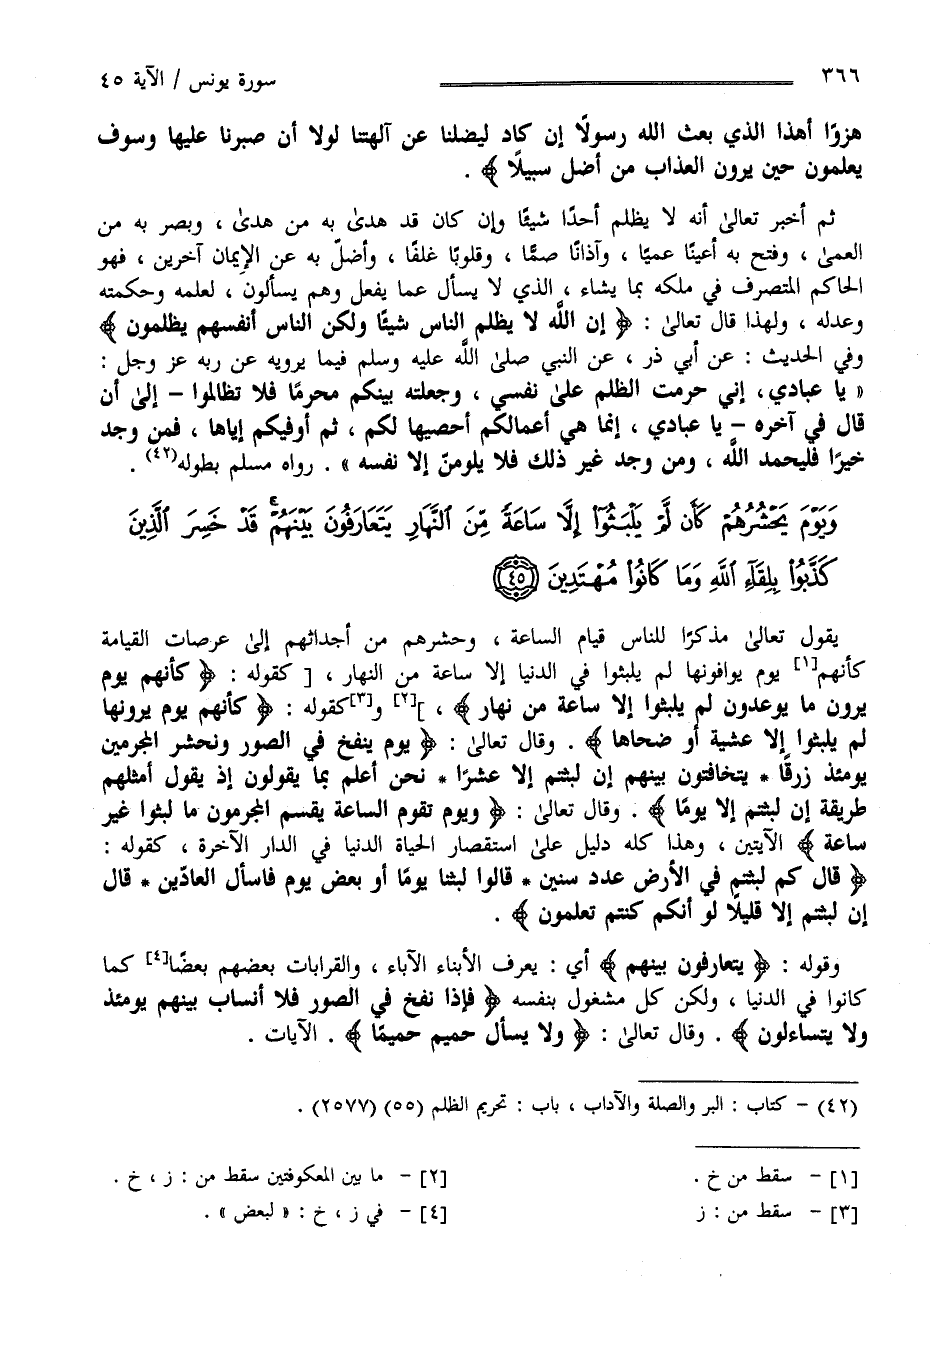 ٣٦٦
سورة يونس / الآية ٤٥
هزوًا أهذا الذي بعث الله رسولًا إن كاد ليضلنا عن آلهتنا لولا أن صبرنا عليها وسوف
يعلمون حين يرون العذاب من أضل سبيلًا ﴾ .
ثم أخبر تعالىٰ أنه لا يظلم أحدًا شيئًا وإن كان قد هدىٰ به من هدىٰ ، وبصر به من
العمىٰ ، وفتح به أعينًا عميًا ، وآذانًا صمًّا ، وقلوبًا غلفًا ، وأضلّ به عن الإيمان آخرين ، فهو
الحاكم المتصرف في ملكه بما يشاء ، الذي لا يسأل عما يفعل وهم يسألون ، لعلمه وحكمته
وعدله ، ولهذا قال تعالىٰ : ﴿ إن اللَّه لا يظلم الناس شيئًا ولكن الناس أنفسهم يظلمون ﴾
وفي الحديث : عن أبي ذر ، عن النبي صلىٰ اللَّه عليه وسلم فيما يرويه عن ربه عز وجل :
« يا عبادي، إني حرمت الظلم علىٰ نفسي ، وجعلته بينكم محرمًا فلا تظالموا – إلىٰ أن
قال في آخره – يا عبادي ، إنما هي أعمالكم أحصيها لكم ، ثم أوفيكم إياها ، فمن وجد
خيرًا فليحمد اللَّه ، ومن وجد غير ذلك فلا يلومنّ إلا نفسه » . رواه مسلم بطوله(٤٢) .
وَيَوْمَ يَحْشُرُهُمْ كَأَن لَّمْ يَلْبَثُوٓا۟ إِلَّا سَاعَةً مِّنَ ٱلنَّهَارِ يَتَعَارَفُونَ بَيْنَهُمْ ۚ قَدْ خَسِرَ ٱلَّذِينَ
كَذَّبُوا۟ بِلِقَآءِ ٱللَّهِ وَمَا كَانُوا۟ مُهْتَدِينَ ٤٥
يقول تعالىٰ مذكرًا للناس قيام الساعة ، وحشرهم من أجداثهم إلىٰ عرصات القيامة
كأنهم[١] يوم يوافونها لم يلبثوا في الدنيا إلا ساعة من النهار ، [ كقوله : ﴿ كأنهم يوم
يرون ما يوعدون لم يلبثوا إلا ساعة من نهار ﴾ ، ][٢] و[٣]كقوله : ﴿ كأنهم يوم يرونها
لم يلبثوا إلا عشية أو ضحاها ﴾ . وقال تعالىٰ : ﴿ يوم ينفخ في الصور ونحشر المجرمين
يومئذ زرقًا * يتخافتون بينهم إن لبثتم إلا عشرًا * نحن أعلم بما يقولون إذ يقول أمثلهم
طريقة إن لبثتم إلا يومًا ﴾ . وقال تعالىٰ : ﴿ ويوم تقوم الساعة يقسم المجرمون ما لبثوا غير
ساعة ﴾ الآيتين ، وهذا كله دليل علىٰ استقصار الحياة الدنيا في الدار الآخرة ، كقوله :
﴿ قال كم لبثتم في الأرض عدد سنين * قالوا لبثنا يومًا أو بعض يوم فاسأل العادّين * قال
إن لبثتم إلا قليلًا لو أنكم كنتم تعلمون ﴾ .
وقوله : ﴿ يتعارفون بينهم ﴾ أي : يعرف الأبناء الآباء ، والقرابات بعضهم بعضًا[٤] كما
كانوا في الدنيا ، ولكن كل مشغول بنفسه ﴿ فإذا نفخ في الصور فلا أنساب بينهم يومئذ
ولا يتساءلون ﴾ . وقال تعالىٰ : ﴿ ولا يسأل حميم حميمًا ﴾ . الآيات .
(٤٢) – كتاب : البر والصلة والآداب ، باب : تحريم الظلم (٥٥) (٢٥٧٧) .
[١] – سقط من خ .
[٢] – ما بين المعكوفتين سقط من : ز ، خ .
[٣] – سقط من : ز
[٤] – في ز ، خ : « لبعض » .